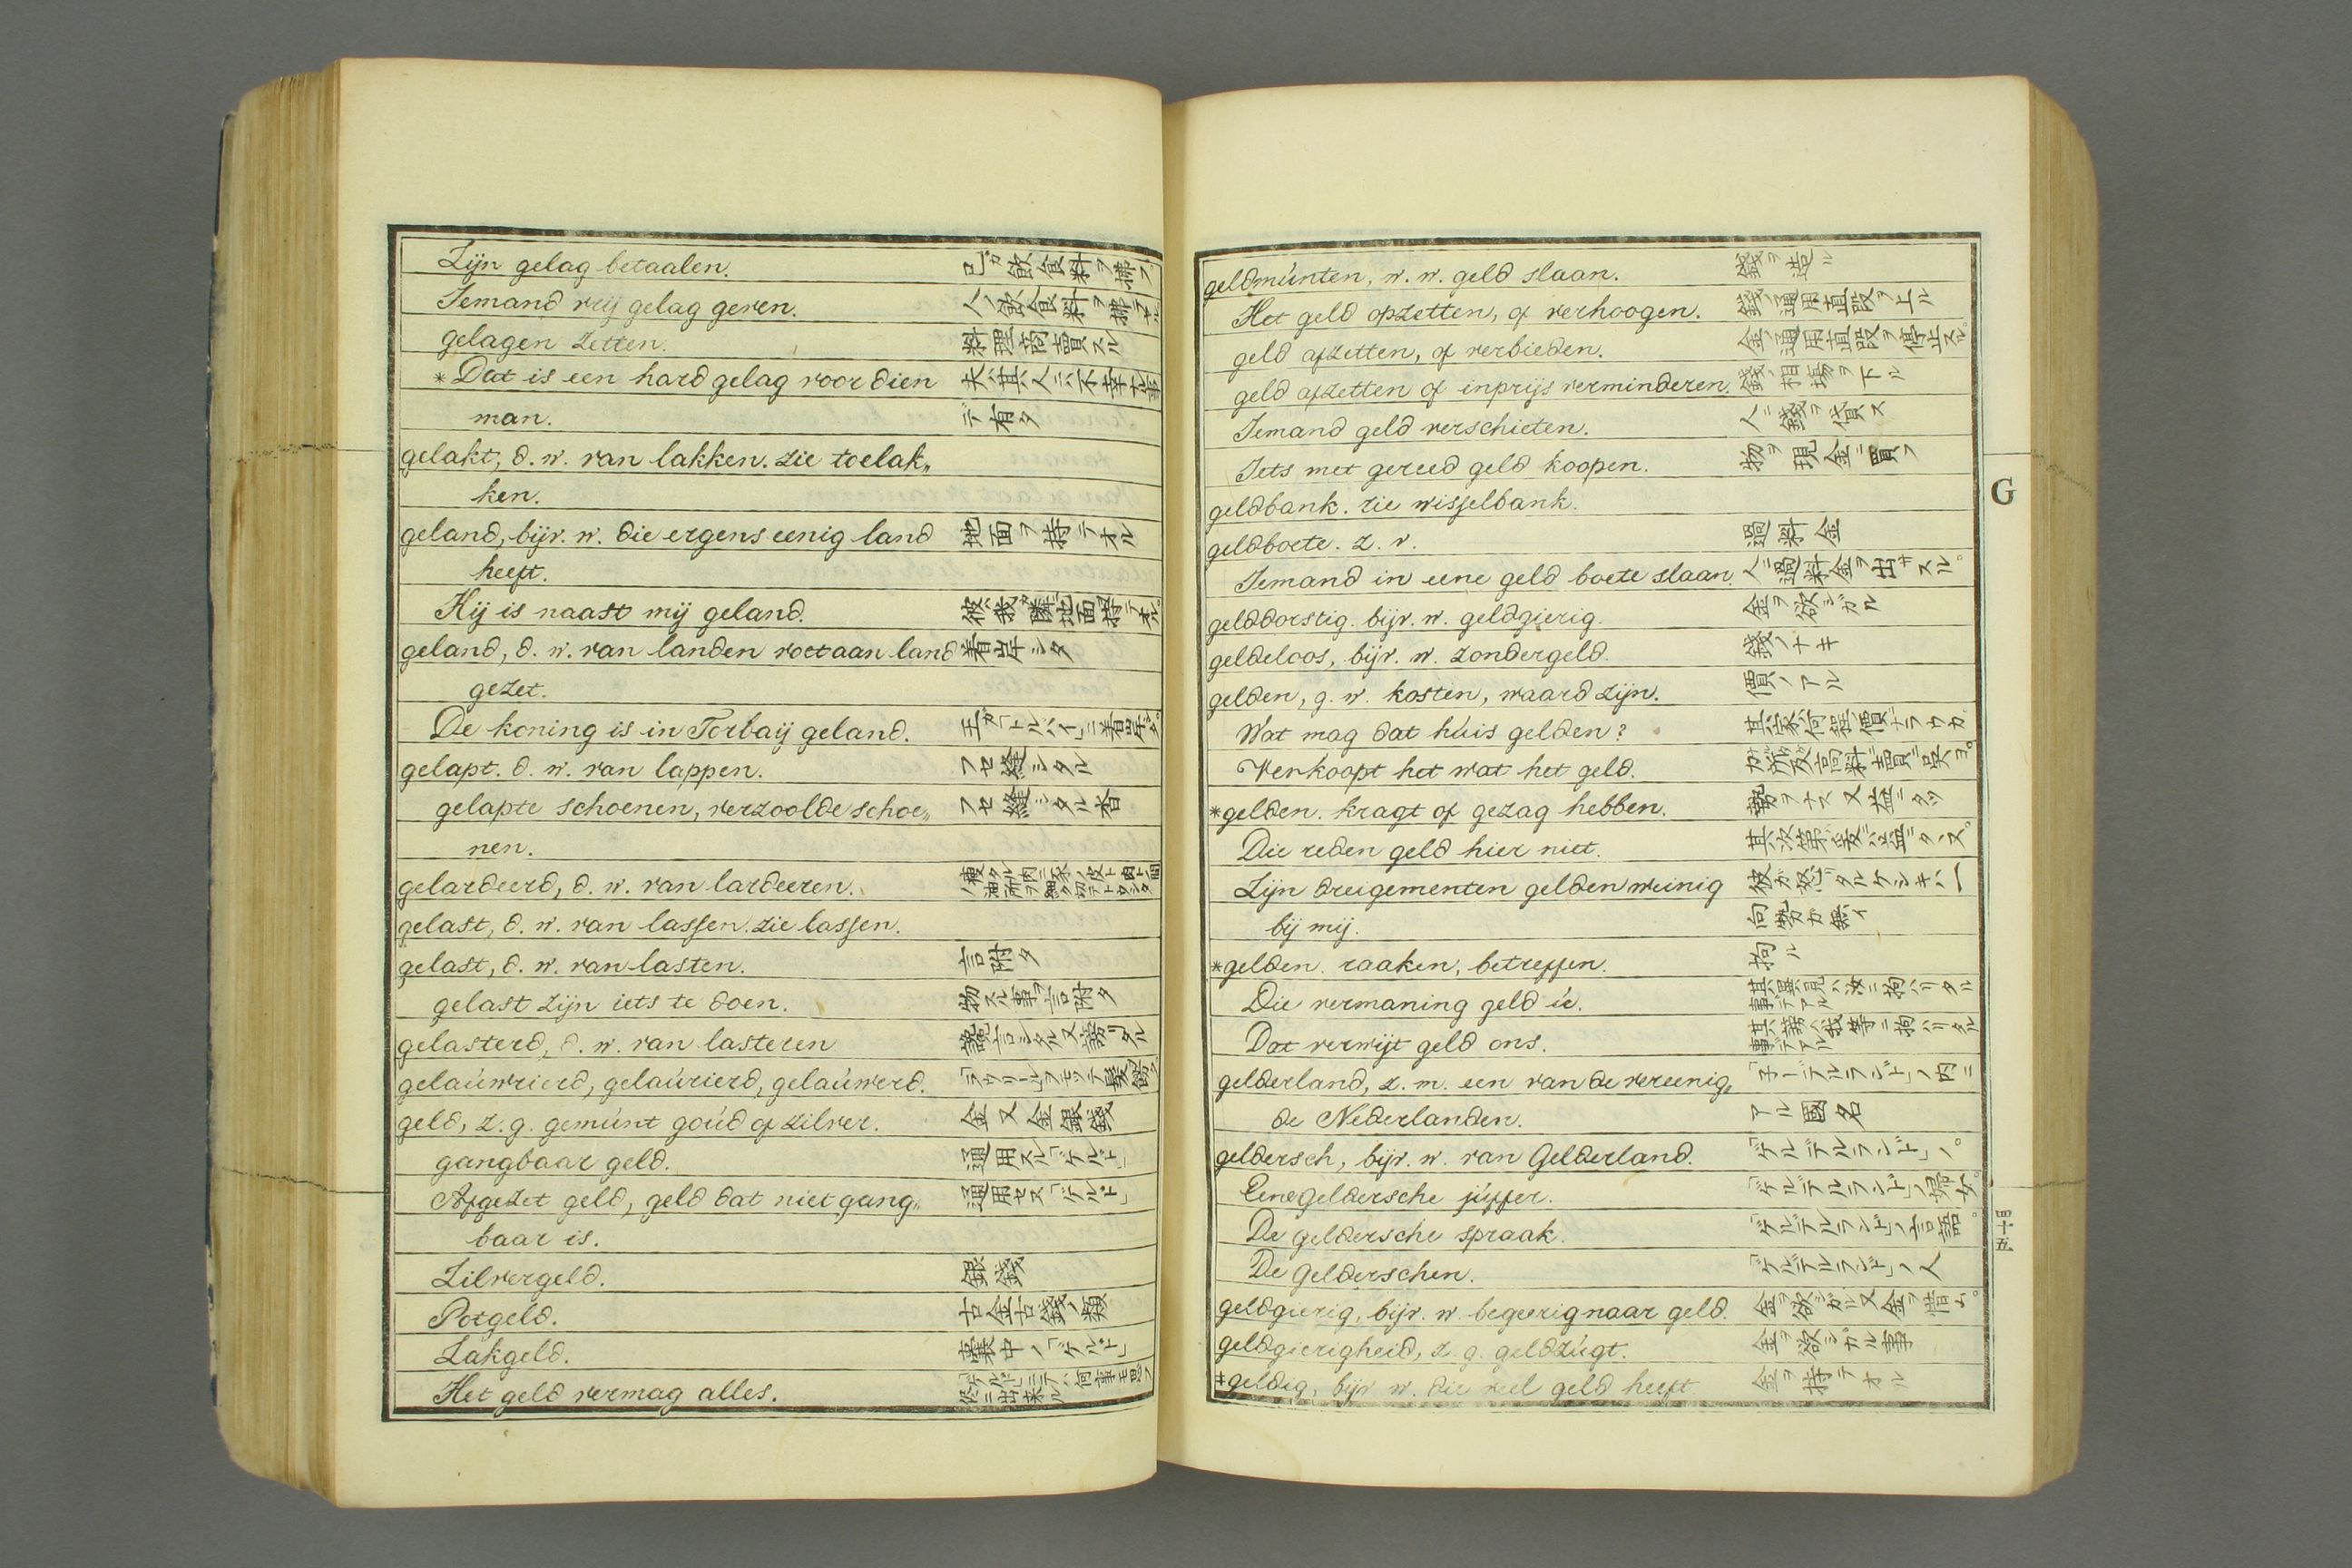 Zijn gelag betaalen. 己ガ飲食料ヲ拂フ
Iemand vrij gelag geven. 人ノ飲食料ヲ拂テヤル
gelagen zetten. 料理商賣スル
* Dat is een hard gelag voor dien 夫ハ其人ニハ不幸ナル事
man. デ有タ
gelakt, d. w. van lakken. zie toelak„
ken.
geland, bijv. w. die ergens eenig land 地面ヲ持テオル
heeft.
Hij is naast mij geland. 彼ハ我ガ隣ニ地面ヲ持テオル。
geland, d. w. van landen voet aan land 着岸シタ
gezet.
De koning is in Torbaij geland. 王ガ「トルバイ」ニ着岸シタ。
gelapt. d. w. van lappen. フセ縫シタル
gelapte schoenen, verzoolde schoe„ フセ縫シタル沓
nen.
gelardeerd, d. w. van lardeeren.
gelast, d. w. van lassen. zie lassen.
gelast, d. w. van lasten. 言附タ
gelast zijn iets te doen. 物スル事ヲ言附タ
gelasterd, d. w. van lasteren 讒言シタル又謗リタル
gelaúwrierd, gelaúrierd, gelaúwerd. 「ラウリール」ヲモツテ髪ヲ飾シ
geld, z. g. gemúnt goúd of zilver. 金又金銀錢
gangbaar geld. 通用スル「ゲルド」
Afgezet geld, geld dat niet gang„ 通用セヌ「ゲルド」
baar is.
Zilvergeld. 銀錢
Potgeld. 古金古錢ノ類
Zakgeld. 嚢中ノ「ゲルド」
Het geld vermag alles. 「ゲルド」ニテハ何事モ思フ
儘ニ出来ル
geldmúnten, w. w. geld slaan. 錢ヲ造ル
Het geld opzetten, of verhoogen. 錢ノ通用直段ヲ上ル
geld afzetten, of verbieden. 金ノ通用直段ヲ停止スル。
geld afzetten of in prijs verminderen. 錢ノ相場ヲ下ル
Iemand geld verschieten. 人ニ錢ヲ貸ス
Iets met gereed geld koopen. 物ヲ現金ニ買フ
geldbank. zie wisselbank.
geldboete. z. v. 過料金
Iemand in eene geld boete slaan. 人ニ過料金ヲ出サスル。
gelddorstig. bijv. w. geldgierig. 金ヲ欲ガル
geldeloos, bijv. w. zonder geld. 錢ノナキ
gelden, g. w. kosten, waard zijn. 價ノアル
Wat mag dat húis gelden? 其家ハ何程ノ價ナラウカ。
Verkoopt het wat het geld.
*gelden. kragt of gezag hebben. 勢ヲナス又益ニタツ
Die reden geld hier niet. 其次第ハ爰ニハ益ニタヽヌ。
Zijn dreigementen gelden weinig 彼ガ怒リタルケシキハ一
bij mij. 向勢ガ無イ
*gelden. raaken, betreffen. 拘ル
Die vermaning geld ú. 其異見ハ汝ニ拘ハリタル
事デアル
Dat verwijt geld ons. 其謗ハ我等ニ拘ハリタル
事デアル
gelderland, z. m. een van de vereenig„ 「子ーデルランド」ノ内ニ
de Nederlanden. アル國名
geldersch, bijv. w. van Gelderland. 「ゲルデルランド」ノ。
Eene geldersche júffer. 「ゲルデルランド」ノ婦女。
De geldersche spraak. 「ゲルデルランド」ノ言語。
De Gelderschen. 「ゲルデルランド」ノ人
geldgierig, bijv. w. begeerig naar geld. 金ヲ欲ガル又金ヲ惜ム。
geldgierigheid, z. g. geldzúgt. 金ヲ欲ガル事
‡geldig, bijv w. die veel geld heeft 金ヲ持テオル
G
四十五